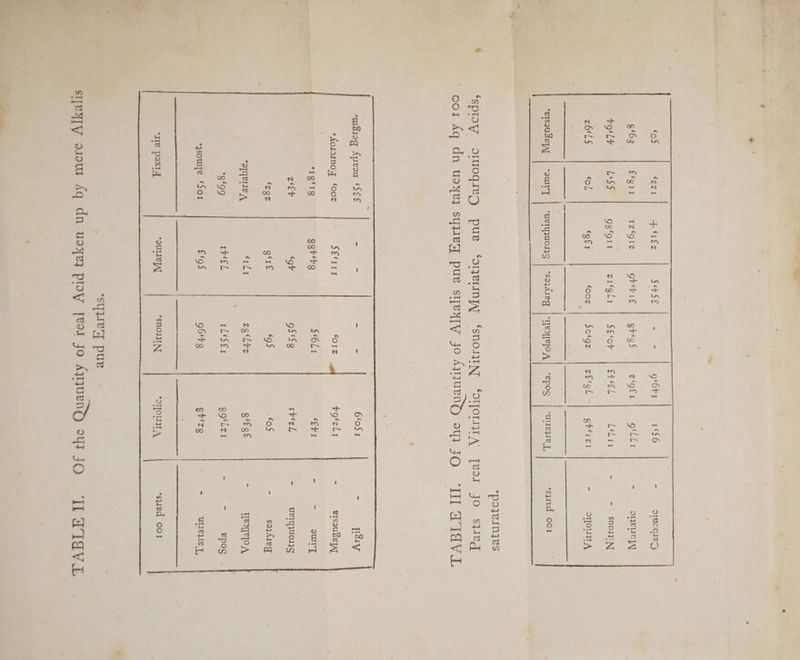 TABLE II. Of the Quantity of real Acid taken up by mere Alkalis
and Earths.
100 parts. Vitriolic. Nitrous. Marine. Fixed air.
Tartarin - 82,48 84,96 56,3 105, almost.
Soda - - 127,68 135,71 73,41 66,8.
Volalkali - 383,8 247,82 171, Variable.
Barytes - 50, 56, 31,8 282,
Stronthian 72,41 85,56 46, 43,2
Lime - - 143, 179,5 84,488 81,81.
Magnesia - 172,64 210, 111,35 200, Fourcroy.
Argil - 150,9 - - - - 335, nearly Bergm.
TABLE III. Of the Quantity of Alkalis and Earths taken up by 100
Parts of real Vitriolic, Nitrous, Muriatic, and Carbonic Acids,
saturated.
100 parts. Tartarin. Soda. Volalkali. Barytes. Stronthian. Lime. Magnesia.
Vitriolic - 121,48 78,32 26,05 200, 138, 70, 57,92
Nitrous - 117,7 73,43 40,35 178,12 116,86 55,7 47,64
Muriatic - 177,6 136,2 58,48 314,46 216,21 118,3 89,8
Carbonic - 95,1 149,6 - - 354,5 231,+ 122, 50,